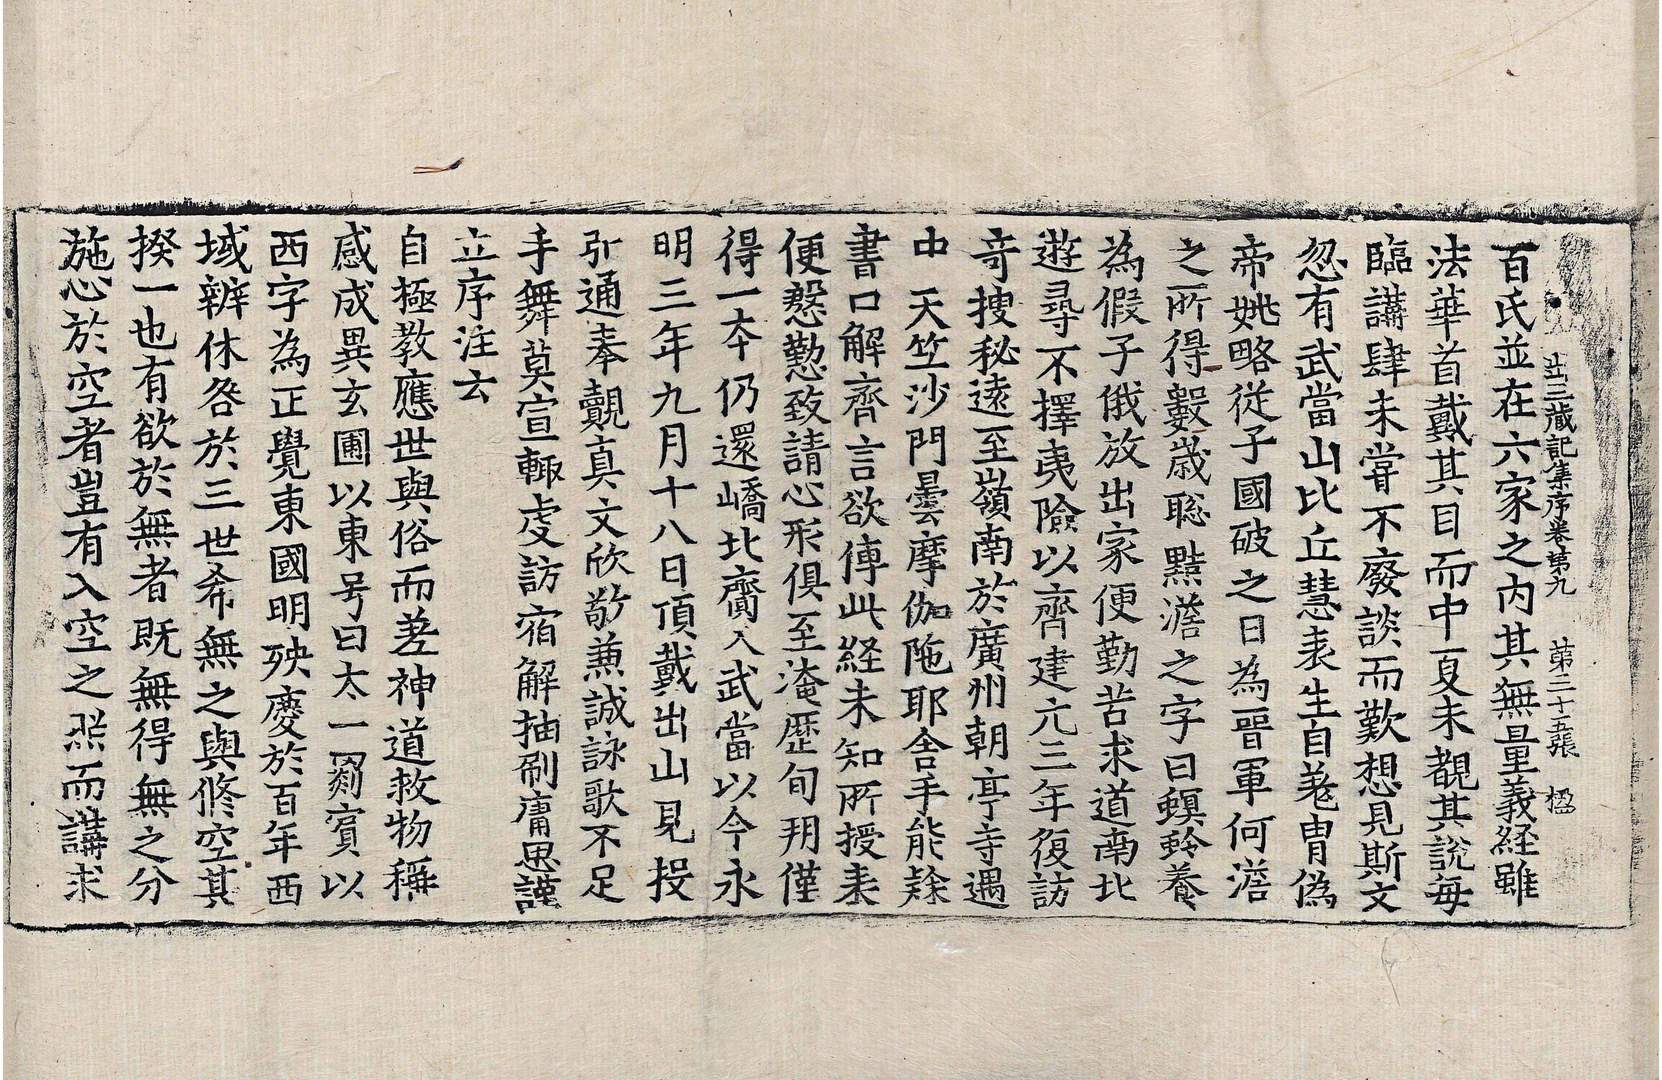 出三蔵記集序卷第九 第二十五張 楹
百氏並在六家之內其無量義経雖
法華首戴其目而中夏未覩其說每
臨講肆未甞不廢談而歎想見斯文
忽有武當山比丘慧表生自羌冑偽
帝姚略從子國破之日為晉軍何澹
之所得數歲聡黠澹之字曰螟蛉養
為假子俄放出家便勤苦求道南北
遊尋不擇夷險以齊建元三年復訪
奇搜秘遠至嶺南於廣州朝亭寺遇
中天竺沙門曇摩伽陁耶舍手能隸
書口解齊言欲傳此経未知所授表
便慇懃致請心形俱至淹歷旬朔僅
得一夲仍還嶠北齎入武當以今永
明三年九月十八日頂戴出山見投
弘通奉覿真文欣敬兼誠詠歌不足
手舞莫宣輒虔訪宿解抽刷庸思謹
立序注云
自極教應世與俗而差神道救物稱
感成異玄圃以東号曰太一罽賓以
西字為正覺東國明殃慶於百年西
域辨休咎於三世希無之與修空其
揆一也有欲於無者既無得無之分
施心於空者豈有入空之照而講求